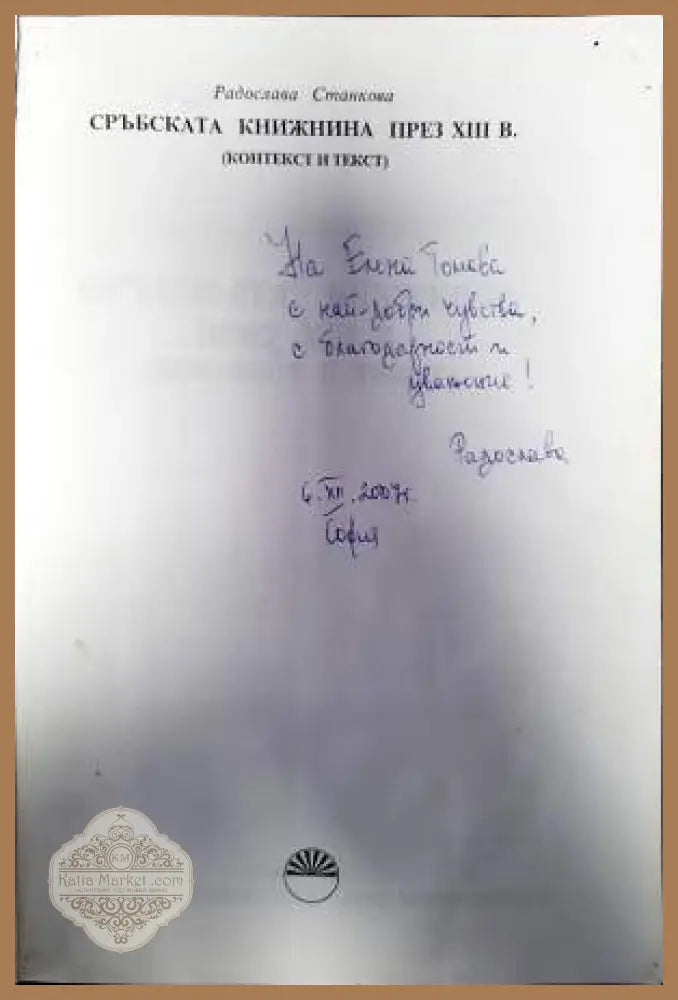 Радослава Станкова
СРЪБСКАТА КНИЖНИНА ПРЕЗ XIII В.
(КОНТЕКСТ И ТЕКСТ)
На Елена Томова
с най-добри чувства,
с благодарност и
уважение!
Радослава
6.XII.2007г.
София
KM
Katia Market.com